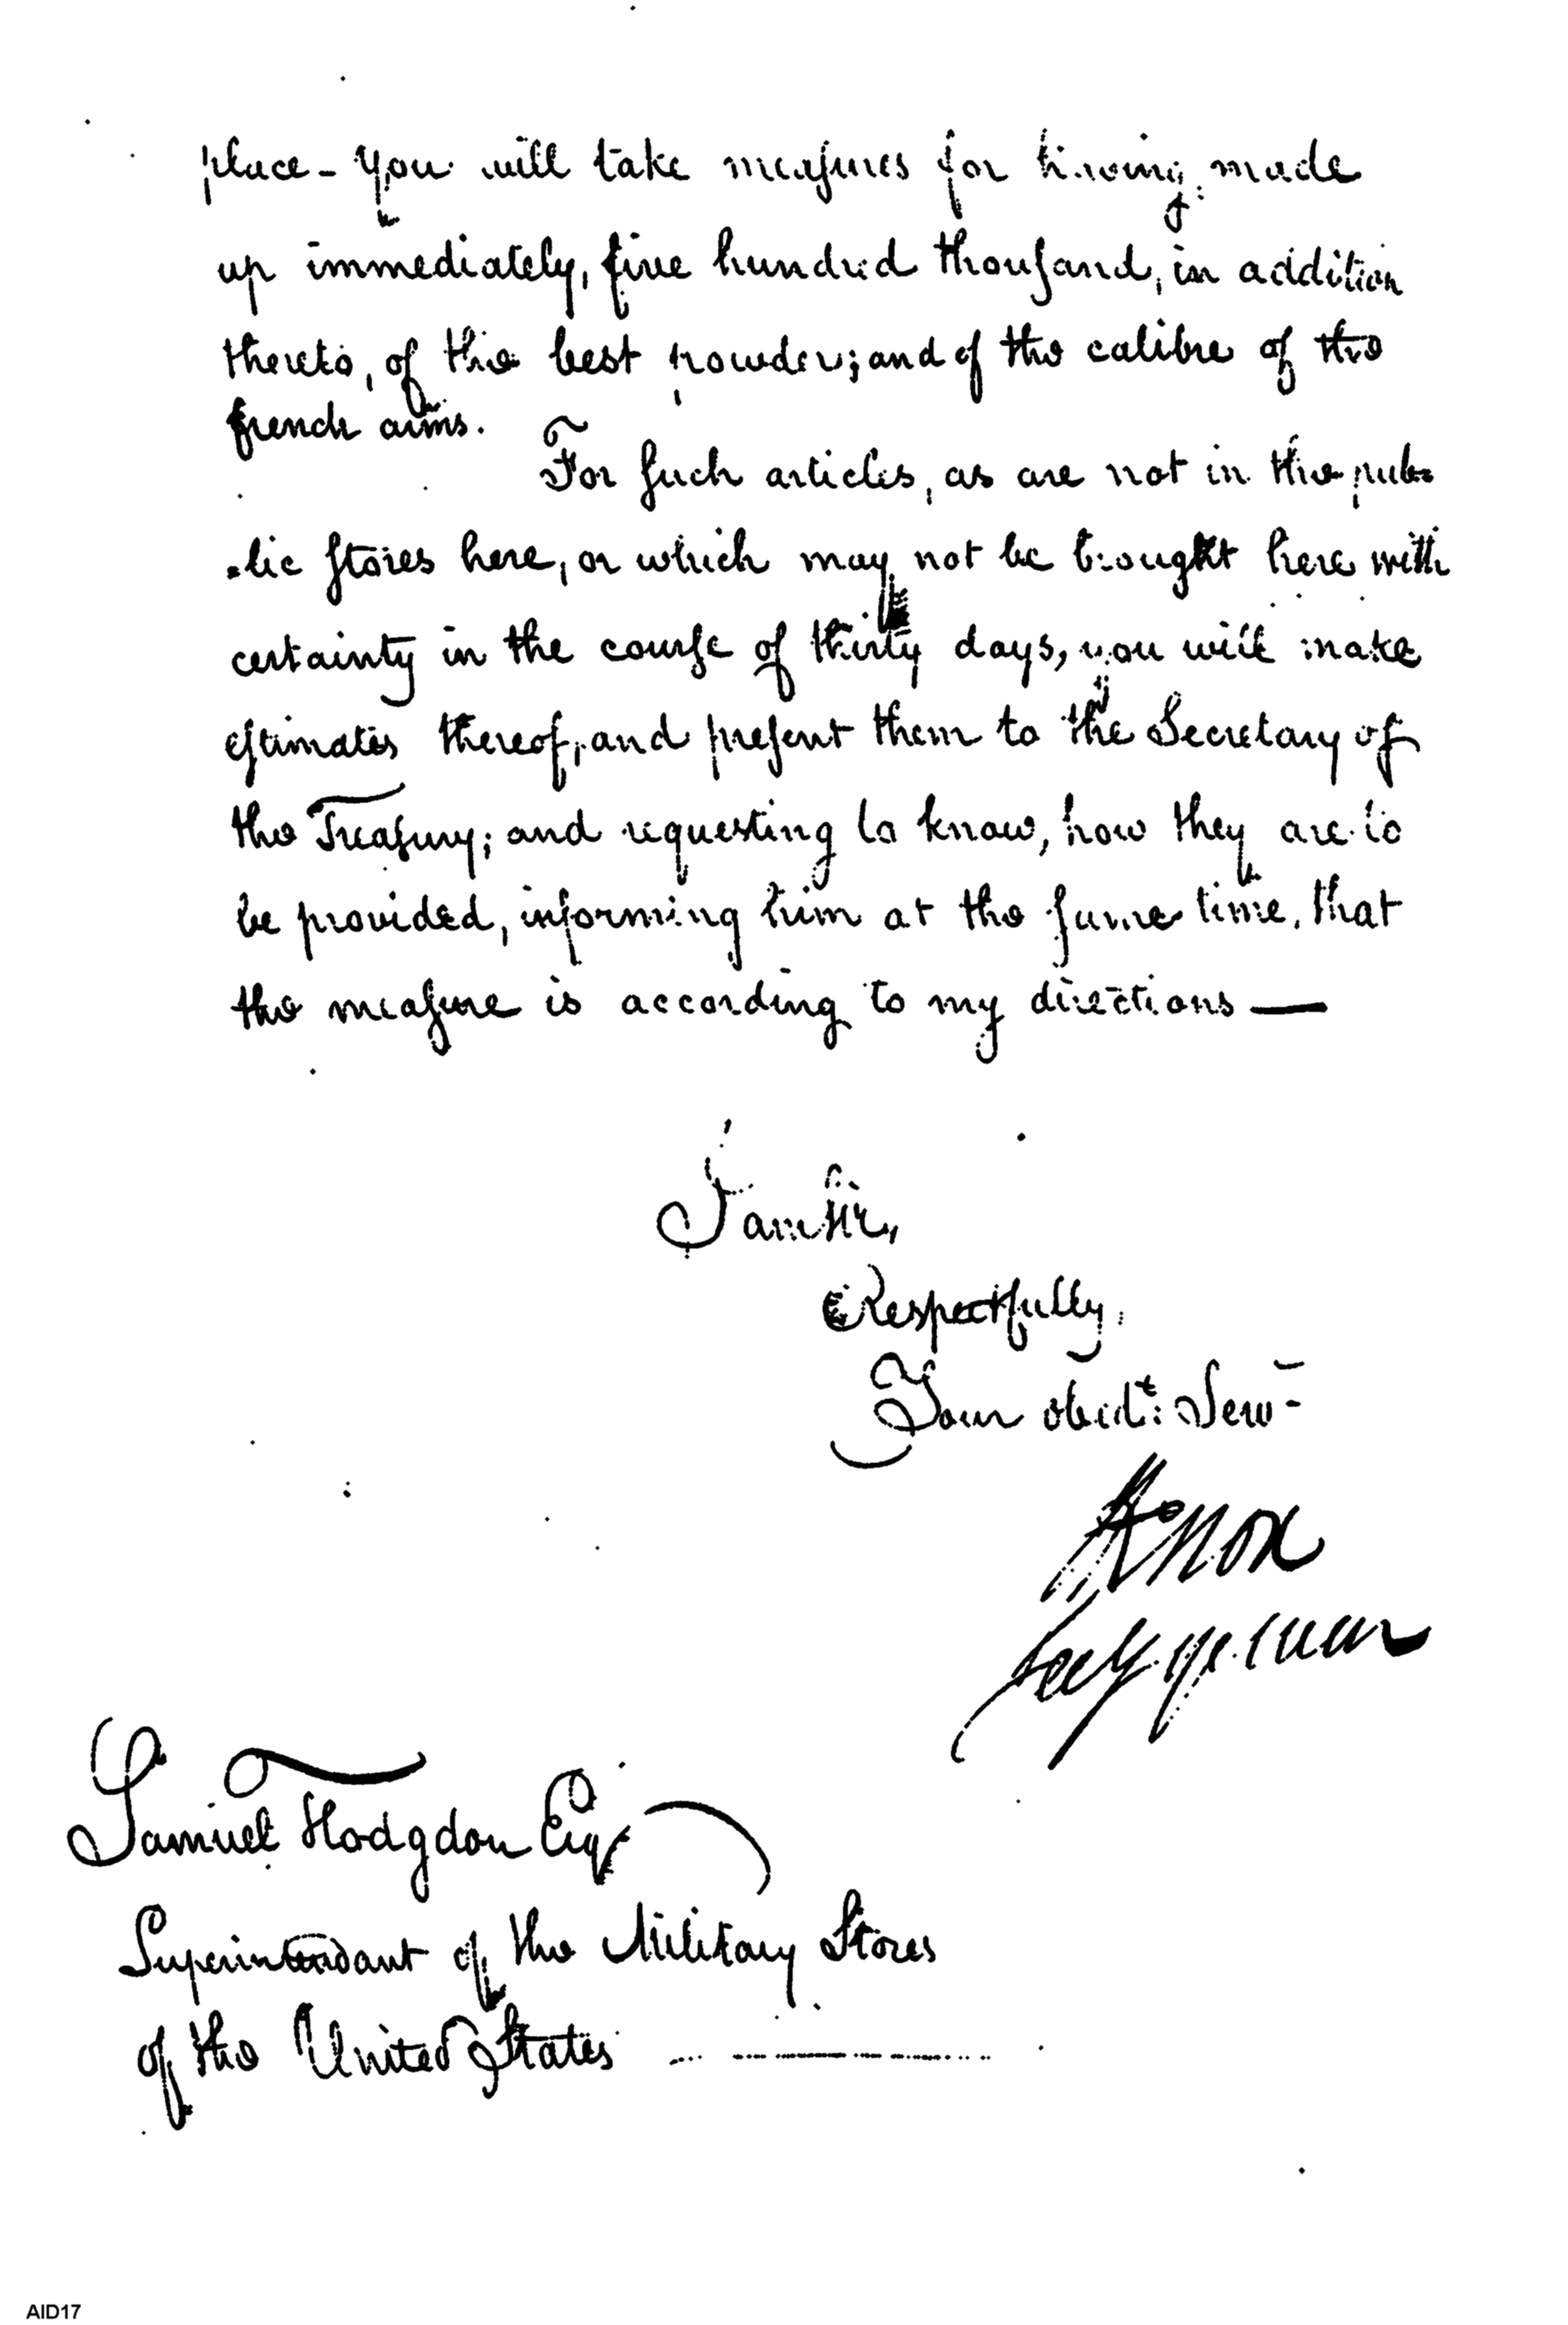 place – You will take measures for having made
up immediately, five hundred thousand, in addition
thereto, of the best powder; and of the calibre of the
french arms.
For such articles, as are not in the pub=
=lic stores here, or which may not be brought here with
certainty in the course of thirty days, you will make
estimates thereof, and present them to the Secretary of
the Treasury; and requesting to know, how they are to
be provided, informing him at the same time, that
the measure is according to my directions —
I am Sir,
Respectfully,
Your obedt: Serv
HKnox
Secy of War
Samuel Hodgdon Esqr
Superintendant of the Military Stores
of the United States
AID17